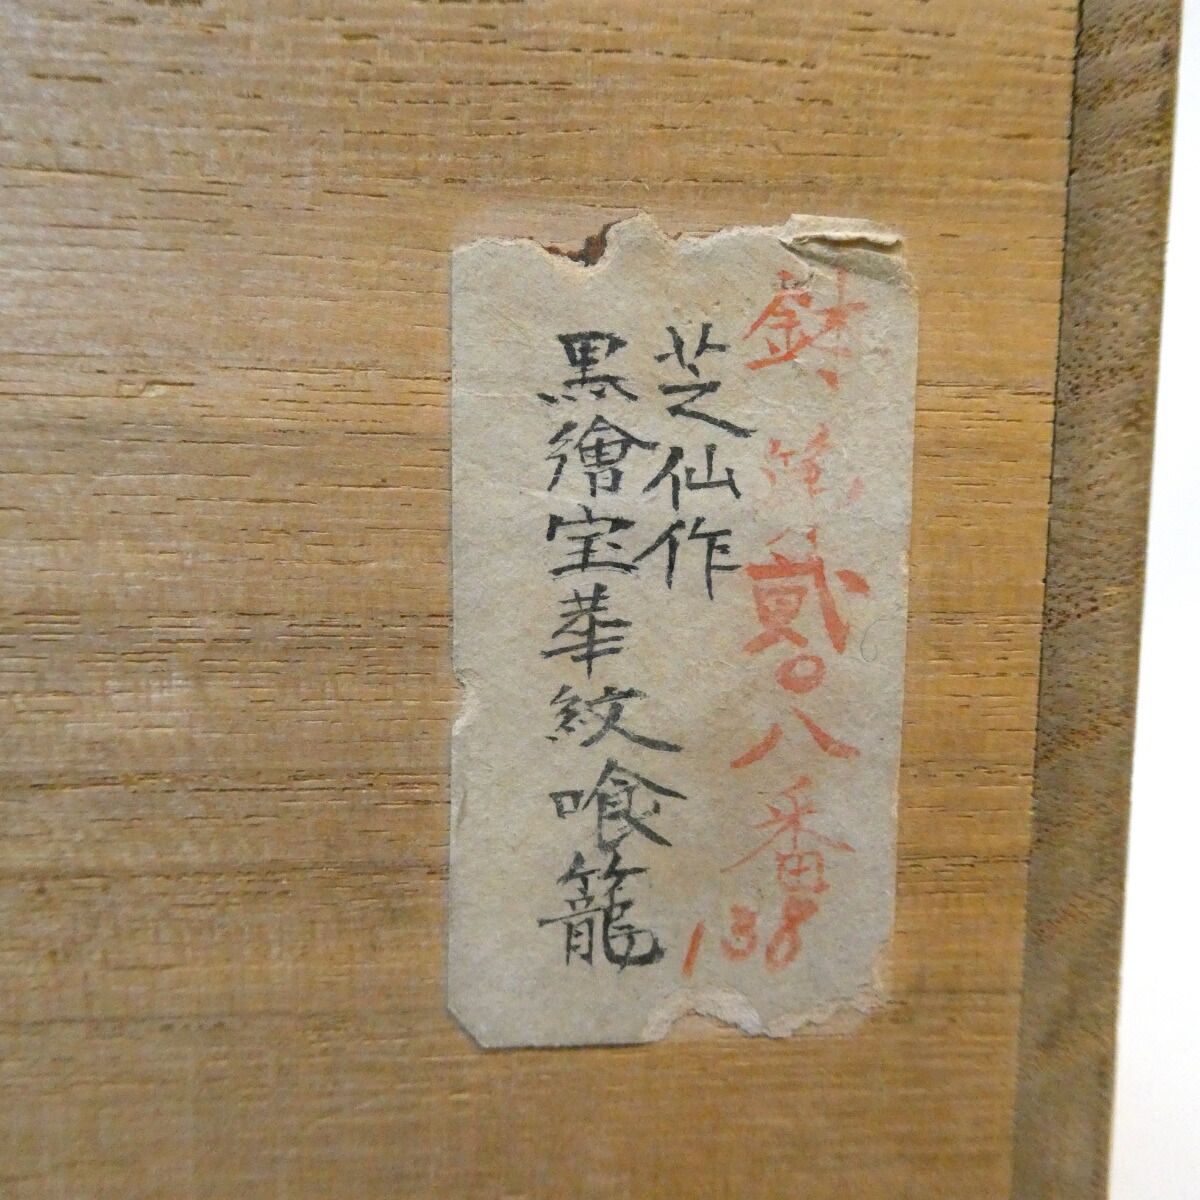 鉢 第貳〇八番
138
芝仙作
黒繪宝華紋喰籠